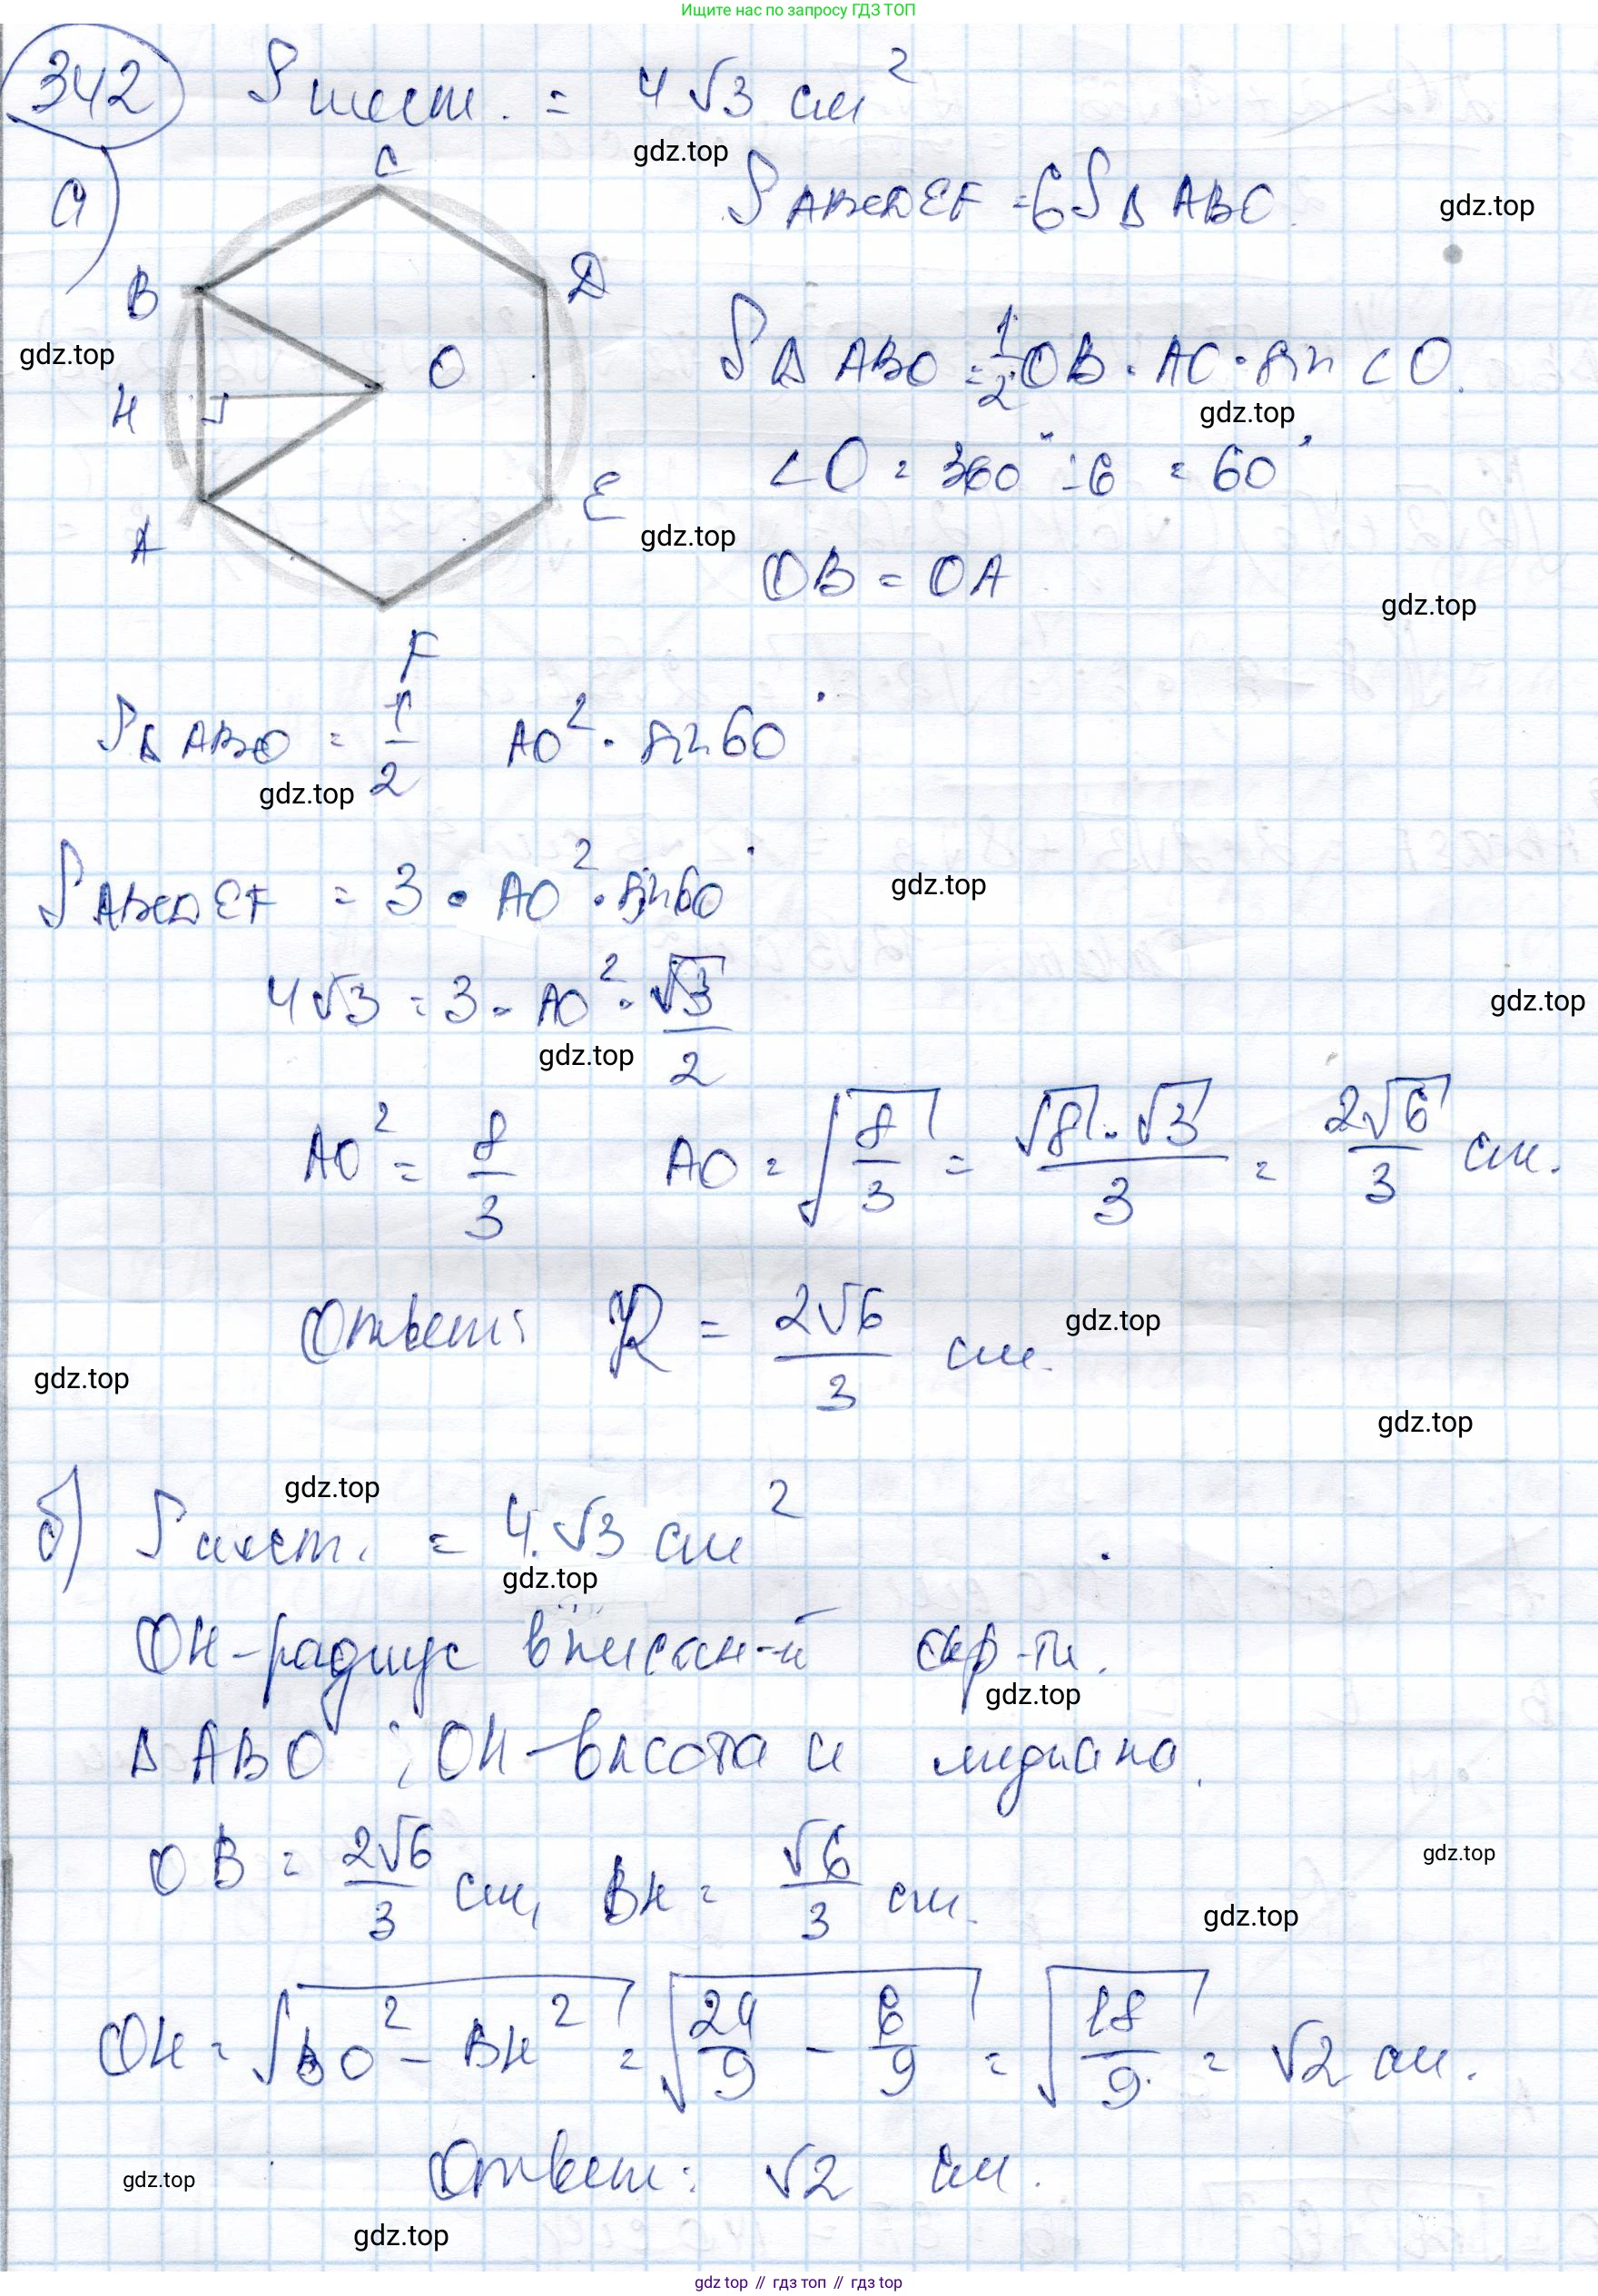 Ищите нас по запросу ГДЗ ТОП
342 Sшест. = 4√3 см²
gdz.top
а) C
S ABCDEF = 6S Δ ABO.
gdz.top
B D
S Δ ABO = 1/2 OB · AO · sin <O.
gdz.top
O
H
gdz.top
<O = 360° : 6 = 60°
A E
gdz.top
OB = OA
gdz.top
F
SΔ ABO = 1/2 AO² · sin 60°
gdz.top
S ABCDEF = 3 · AO² · sin 60°
gdz.top
4√3 = 3 · AO² · √3/2
gdz.top
gdz.top
AO² = 8/3 AO = √(8/3) = √8 · √3/3 = 2√6/3 см.
Ответ: R = 2√6/3 см.
gdz.top
gdz.top
gdz.top
gdz.top
б) Sшест. = 4·√3 см²
gdz.top
OH - радиус вписан-й окр-ти.
gdz.top
Δ ABO ; OH - высота и медиана.
OB = 2√6/3 см, BH = √6/3 см.
gdz.top
gdz.top
OH = √(BO² - BH²) = √(24/9 - 6/9) = √(18/9) = √2 см.
Ответ: √2 см.
gdz.top
gdz.top
gdz top // гдз топ // gdz top